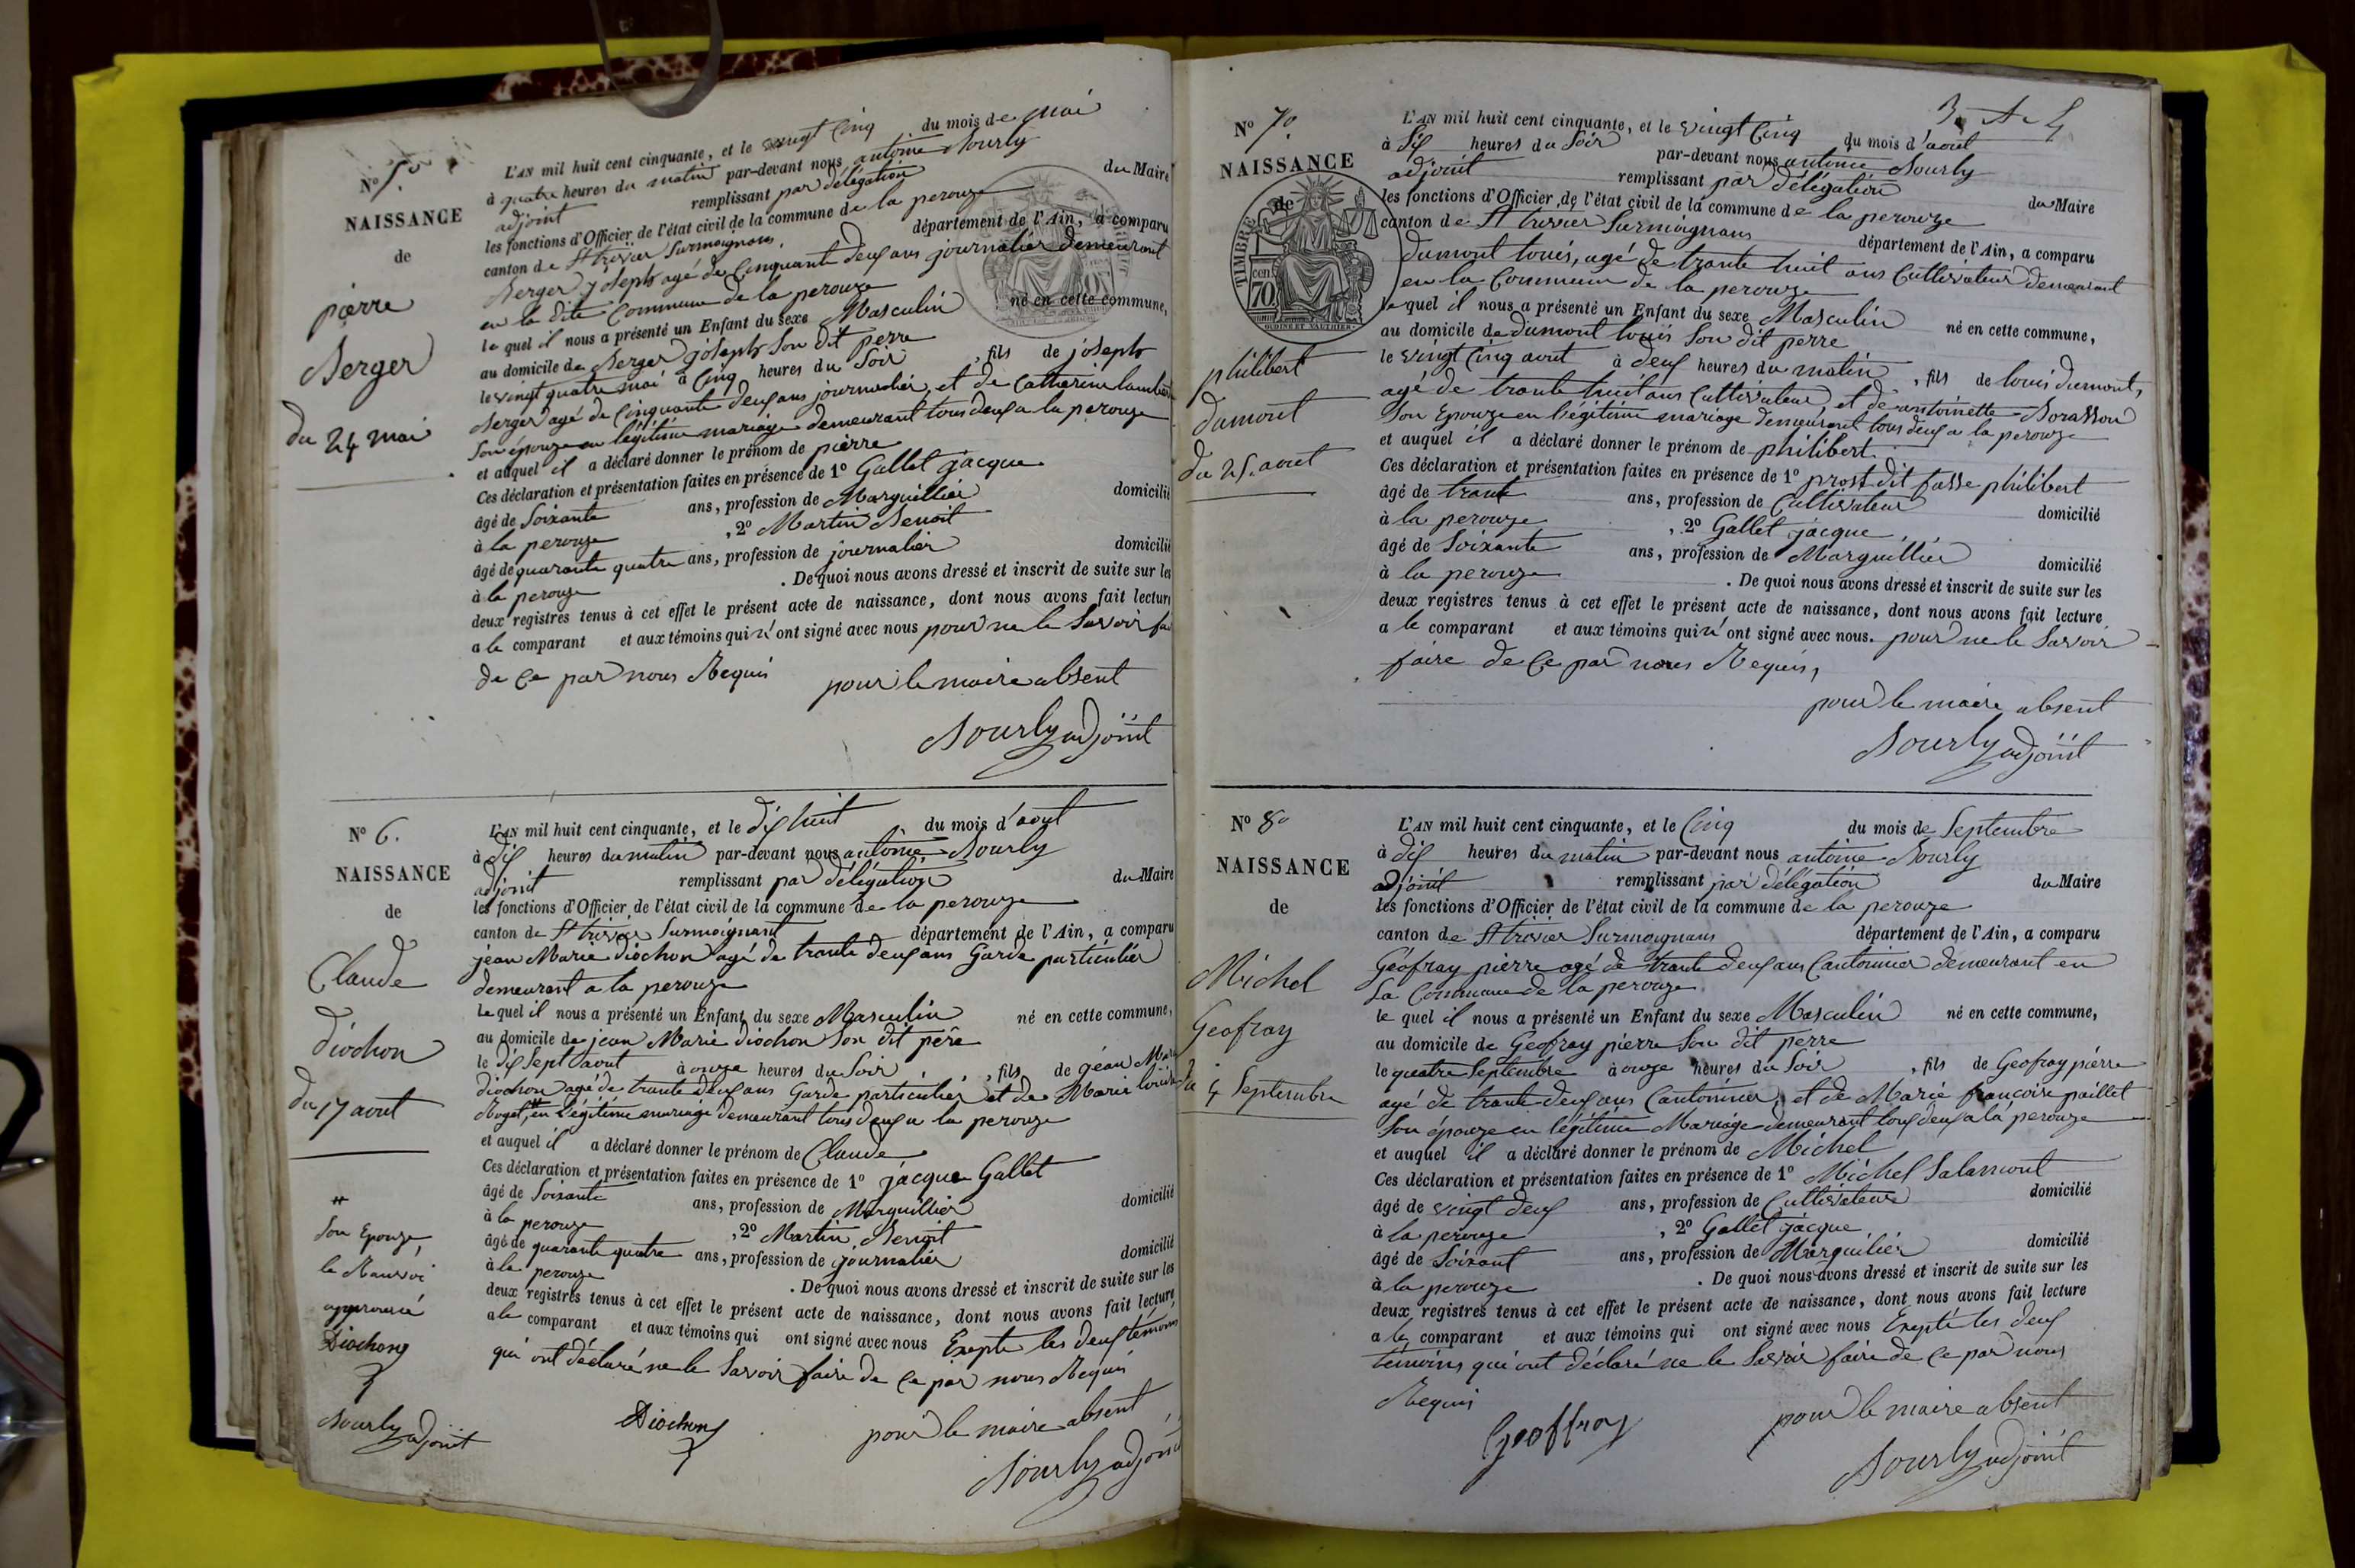 N° 5°
NAISSANCE
de
pierre
Berger
du 24 mai
L'AN mil huit cent cinquante, et le vingt Cinq du mois de mai
à quatre heures du matin par-devant nous antoine Sourly
adjoint remplissant par délégation du Maire
les fonctions d'Officier de l'état civil de la commune de la perouze
canton de St trivier Surmoignans département de l'Ain, a comparu
Berger joseph agé de Cinquante deux ans journalier demeurant
en la dite Commune de la perouze
le quel il nous a présenté un Enfant du sexe Masculin né en cette commune,
au domicile de Berger joseph Son dit perre
le vingt quatre mai à Cinq heures du Soir, fils de joseph
Berger agé de Cinquante deux ans journalier, et de Catherine
Son épouze en légitime mariage demeurant tous deux a la perouze
et auquel il a déclaré donner le prénom de pierre
Ces déclaration et présentation faites en présence de 1° Gallet jacque
âgé de Soixante ans, profession de Marguillier domicilié
à la perouze, 2° Martin Benoit
âgé de quarante quatre ans, profession de journalier domicilié
à la perouze. De quoi nous avons dressé et inscrit de suite sur les
deux registres tenus à cet effet le présent acte de naissance, dont nous avons fait lecture
a le comparant et aux témoins qui n'ont signé avec nous pour ne le Savoir
de Ce par nous Requis
pour le maire absent
Sourly adjoint
N° 6.
NAISSANCE
de
Claude
diochon
du 17 aout
#
Son Epouze,
le Ranvoi
approuvé
Diochon
Sourly adjoint
L'AN mil huit cent cinquante, et le dix huit du mois d'aout
à dix heures du matin par-devant nous antoine Sourly
adjoint remplissant par délégation du Maire
les fonctions d'Officier de l'état civil de la commune de la perouze
canton de St trivier Surmoignant département de l'Ain, a comparu
jean Marie diochon agé de trante deux ans Garde particulier
demeurant a la perouze
le quel il nous a présenté un Enfant du sexe Masculin né en cette commune,
au domicile de jean Marie diochon Son dit père
le dix Sept aout à onze heures du Soir, fils de jéan Marie
diochon agé de trante deux ans Garde particulier et de Marie
# en Légitime mariage demeurant tous deux a la perouze
et auquel il a déclaré donner le prénom de Claude
Ces déclaration et présentation faites en présence de 1° jacque Gallet
âgé de Soixante ans, profession de Marguillier domicilié
à la perouze, 2° Martin Benoit
âgé de quarante quatre ans, profession de journalier domicilié
à la perouze. De quoi nous avons dressé et inscrit de suite sur les
deux registres tenus à cet effet le présent acte de naissance, dont nous avons fait lecture,
a le comparant et aux témoins qui ont signé avec nous Exepté les deux témoins
qui ont déclaré ne le Savoir faire de Ce par nous Requis
Diochon
pour le maire absent
Sourly adjoint
N° 7°
NAISSANCE
de
TIMBRE
70
philibert
dumont
du 25. aout
L'AN mil huit cent cinquante, et le vingt Cinq du mois d'aout
à Six heures du Soir par-devant nous antoine Sourly
adjoint remplissant par délégation du Maire
les fonctions d'Officier de l'état civil de la commune de la perouze
canton de St trivier Surmoignans département de l'Ain, a comparu
dumont louis, agé de trante huit ans Cultivateur demeurant
en la Commune de la perouze
le quel il nous a présenté un Enfant du sexe Masculin né en cette commune,
au domicile de dumont louis Son dit perre
le vingt Cinq aout à deux heures du matin, fils de louis dumont,
agé de trante huit ans Cultivateur, et de antoinette
Son Epouze en légitime mariage demeurant tous deux a la perouze
et auquel il a déclaré donner le prénom de philibert.
Ces déclaration et présentation faites en présence de 1° prost dit fasse philibert
âgé de trante ans, profession de Cultivateur domicilié
à la perouze, 2° Gallet jacque,
âgé de Soixante ans, profession de Marguillier domicilié
à la perouze. De quoi nous avons dressé et inscrit de suite sur les
deux registres tenus à cet effet le présent acte de naissance, dont nous avons fait lecture
a le comparant et aux témoins qui n'ont signé avec nous. pour ne le Savoir
faire de Ce par nous Requis,
pour le maire absent
Sourly adjoint
N° 8°
NAISSANCE
de
Michel
Geofray
du 4 Septembre
L'AN mil huit cent cinquante, et le Cinq du mois de Septembre
à dix heures du matin par-devant nous antoine Sourly
adjoint remplissant par délégation du Maire
les fonctions d'Officier de l'état civil de la commune de la perouze
canton de St trivier Surmoignans département de l'Ain, a comparu
Géofray pierre agé de trante deux ans Cantonnier demeurant en
La Commune de la perouze
le quel il nous a présenté un Enfant du sexe Masculin né en cette commune,
au domicile de Geofray pierre Son dit perre
le quatre Septembre à onze heures du Soir, fils de Geofray pierre
agé de trante deux ans Cantonnier, et de Marie françoise paillet
Son épouze en légitime Mariage demeurant tous deux a la perouze
et auquel il a déclaré donner le prénom de Michel
Ces déclaration et présentation faites en présence de 1° Michel Salamont
âgé de vingt deux ans, profession de Cultivateur domicilié
à la perouze, 2° Gallet jacque
âgé de Soixant ans, profession de Marguilier domicilié
à la perouze. De quoi nous avons dressé et inscrit de suite sur les
deux registres tenus à cet effet le présent acte de naissance, dont nous avons fait lecture
a le comparant et aux témoins qui ont signé avec nous Exepté les deux
témoins qui ont déclaré ne le Savoir faire de Ce par nous
Requis
Geoffray
pour le maire absent
Sourly adjoint